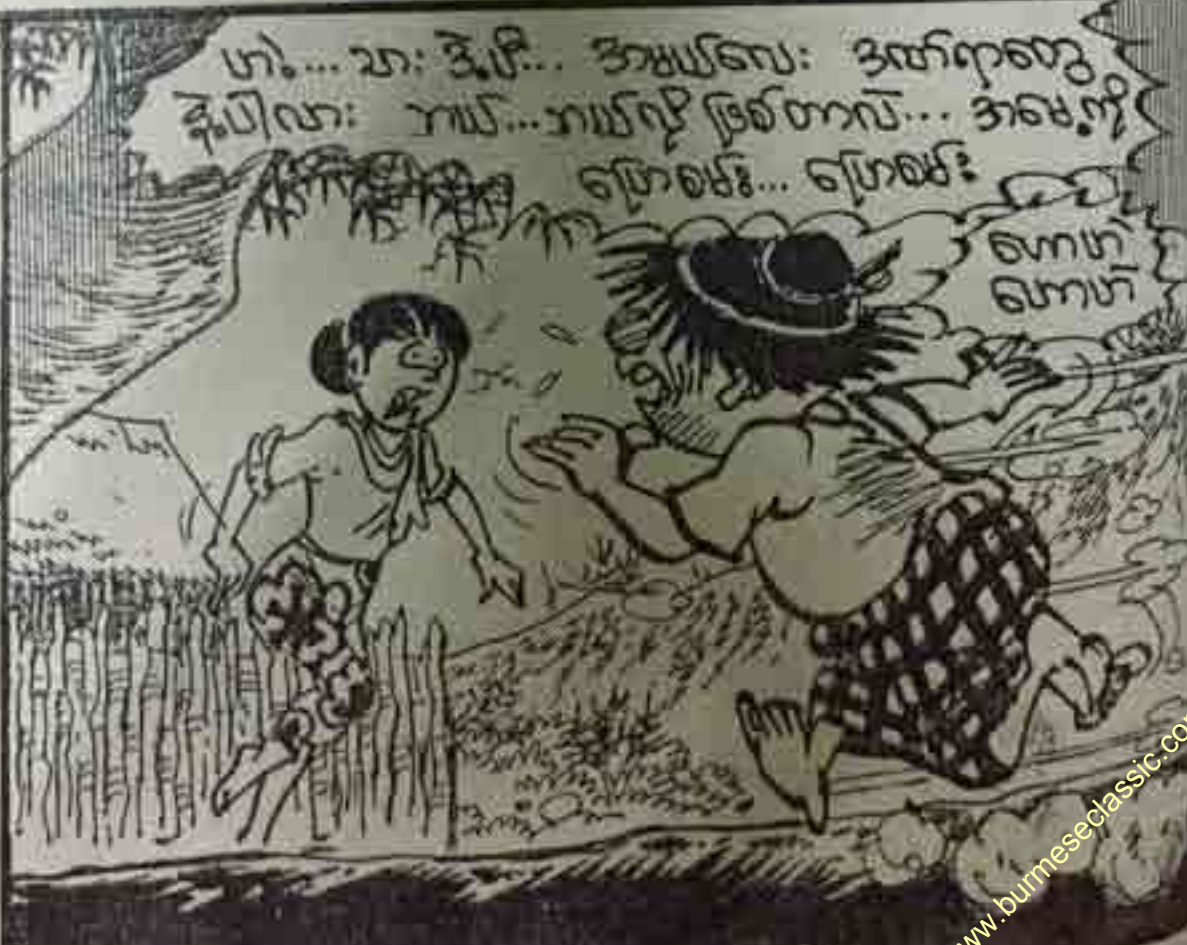 ဟဲ့... သား ဒီ့ပီ... ဒယ်လေး ဒဏ်ရာတွေ
နဲ့ပါလား ဘယ်...ဘယ်လို ဖြစ်တာလဲ... အမေ့ကို
ပြောစမ်း... ပြောစမ်း
ဟောဟဲ
ဟောဟဲ
www.burmeseclassic.com